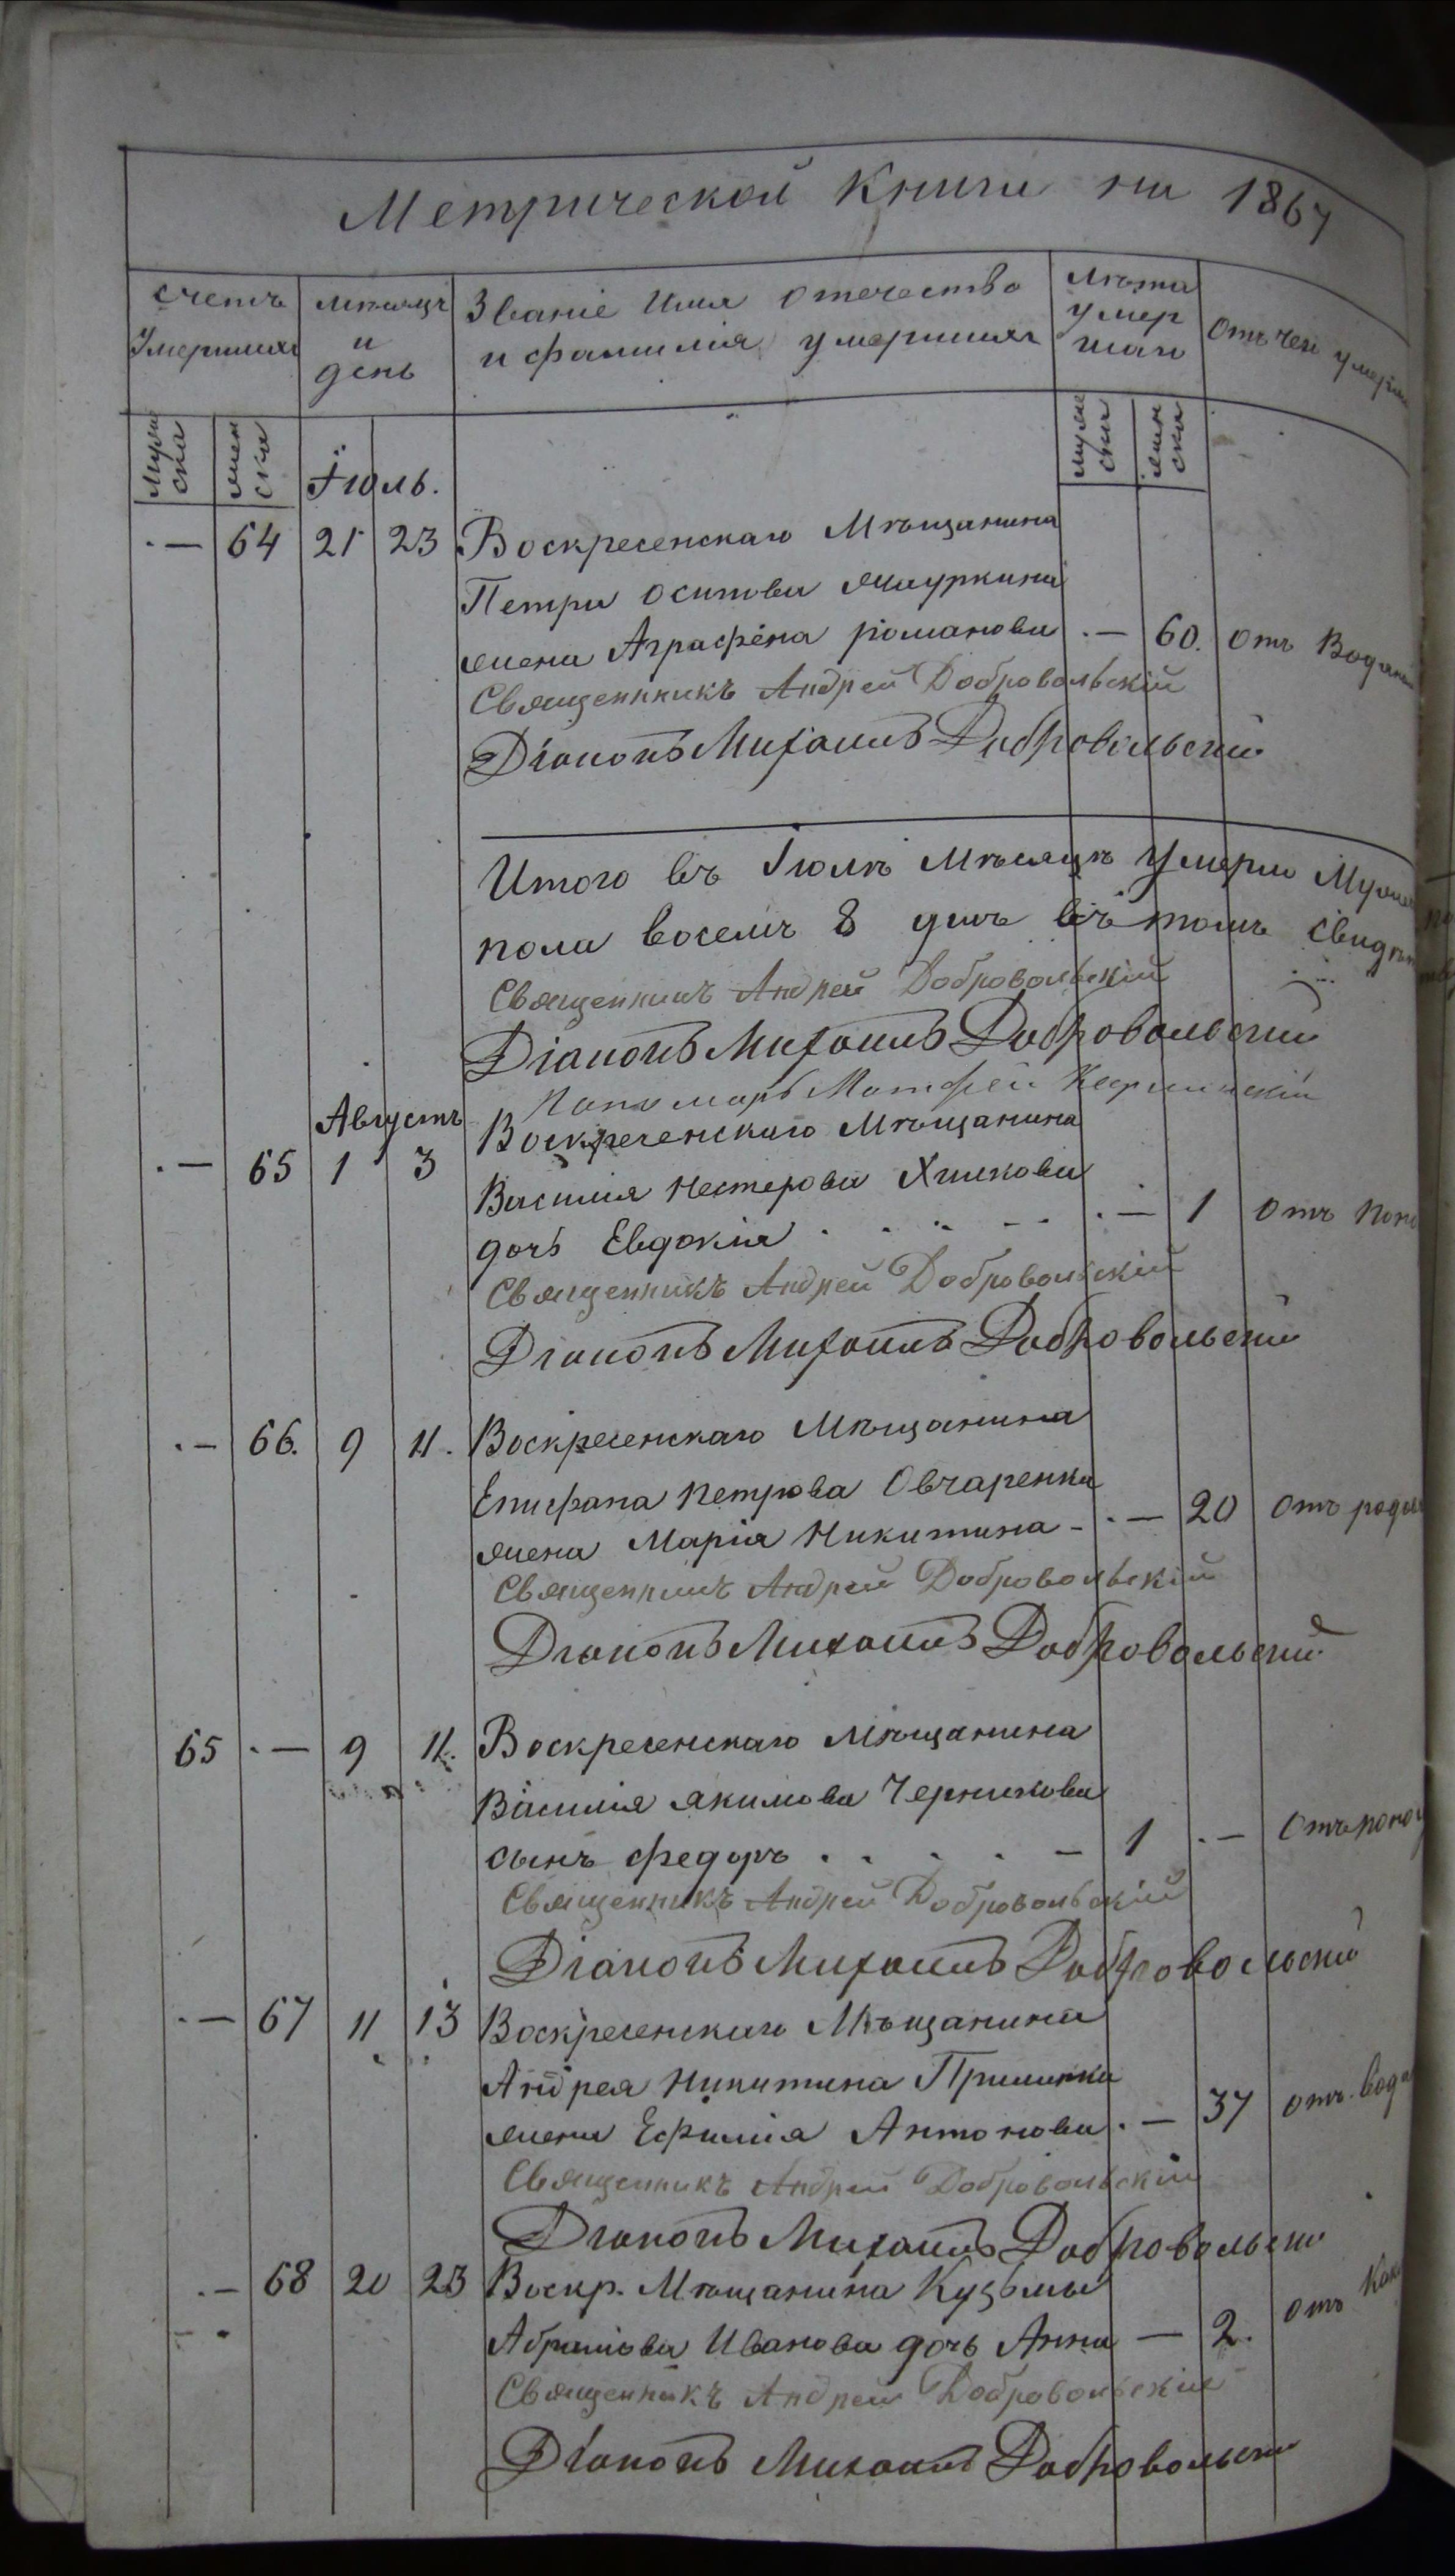 Метрической Книги на 1867
счетъ Умершихъ
мѣсяцъ и день
Званіе Имя отечество и фамилія умершихъ
лѣта умершаго
Отъ чего умерли
мужеска
женска
Іюль.
мужеска
женска
·— 64 21 23 Воскресенскаго Мѣщанина
Петра осипова
жена Аграфена романова ·— 60. отъ Водяной
Священникъ Андрей Добровольскій
Діаконъ Михаилъ Добровольскій
Итого въ Іюлѣ Мѣсяцѣ умерло Мужеска
пола восемъ 8 душъ въ томъ свидѣт
Священникъ Андрей Добровольскій
Діаконъ Михаилъ Добровольскій
Пономарь Матфей
Августъ
·— 65 1 3 Воскресенскаго Мѣщанина
Василія Нестерова Хилкова
дочь Евдокія ·— 1 отъ поно
Священникъ Андрей Добровольскій
Діаконъ Михаилъ Добровольскій
·— 66. 9 11. Воскресенскаго Мѣщанина
Епифана петрова Овчаренка
жена Марія Никитина ·— 20 отъ родов
Священникъ Андрей Добровольскій
Діаконъ Михаилъ Добровольскій
65 ·— 9 11. Воскресенскаго Мѣщанина
Василія якимова Черникова
сынъ федоръ 1 ·— Отъ поно
Священникъ Андрей Добровольскій
Діаконъ Михаилъ Добровольскій
·— 67 11 13 Воскресенскаго Мѣщанина
Андрея Никитина
жена Ефимія Антонова ·— 37 отъ вод
Священникъ Андрей Добровольскій
Діаконъ Михаилъ Добровольскій
·— 68 20 23 Воскр. Мѣщанина Кузьмы
Абрамова Иванова дочь Анна — 2. отъ
Священникъ Андрей Добровольскій
Діаконъ Михаилъ Добровольскій